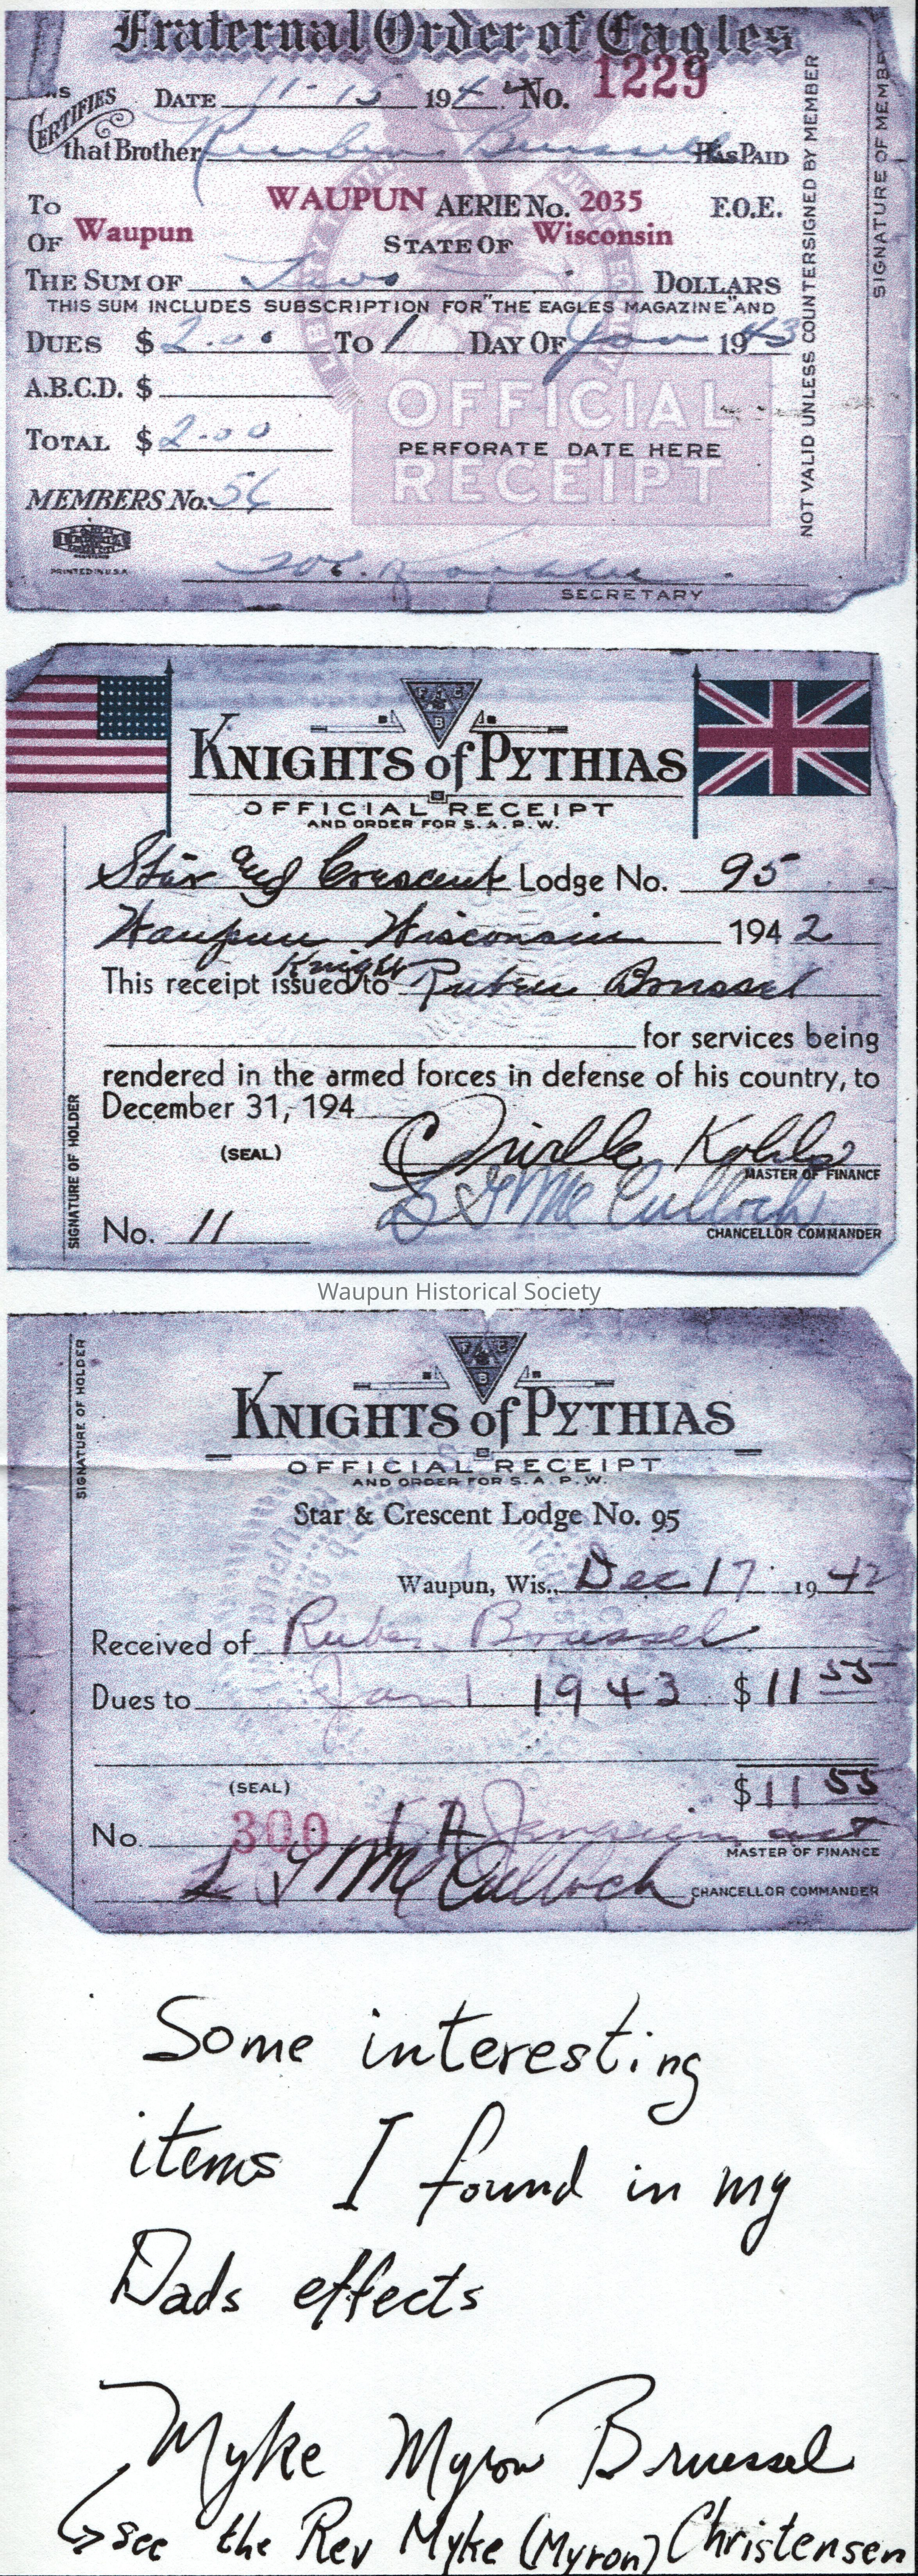 Fraternal Order of Eagles
CERTIFIES DATE 11-15 194 No. 1229
that Brother Reuben Bruessel HAS PAID
TO WAUPUN AERIE No. 2035 F.O.E.
OF Waupun STATE OF Wisconsin
THE SUM OF Two DOLLARS
THIS SUM INCLUDES SUBSCRIPTION FOR "THE EAGLES MAGAZINE" AND
DUES $ 2.00 TO 1 DAY OF Jan 1943
A.B.C.D. $
OFFICIAL
TOTAL $ 2.00
PERFORATE DATE HERE
RECEIPT
MEMBERS No. 56
PRINTED IN U.S.A.
SECRETARY
NOT VALID UNLESS COUNTERSIGNED BY MEMBER
SIGNATURE OF MEMBE
F C B
KNIGHTS of PYTHIAS
OFFICIAL RECEIPT
AND ORDER FOR S. A. P. W.
Star and Crescent Lodge No. 95
Waupun Wisconsin 1942
Knight
This receipt issued to Ruben Brussel
for services being
rendered in the armed forces in defense of his country, to
December 31, 194
(SEAL) Orville Kohls
MASTER OF FINANCE
L J McCulloch
No. 11 CHANCELLOR COMMANDER
SIGNATURE OF HOLDER
Waupun Historical Society
F C B
KNIGHTS of PYTHIAS
OFFICIAL RECEIPT
AND ORDER FOR S. A. P. W.
Star & Crescent Lodge No. 95
Waupun, Wis., Dec 17 1942
Received of Ruben Brussel
Dues to Jan 1 1943 $ 11 55
(SEAL) $ 11 55
No. 300
MASTER OF FINANCE
L J McCulloch CHANCELLOR COMMANDER
SIGNATURE OF HOLDER
Some interesting
items I found in my
Dads effects
Myke Myron Bruessel
see the Rev Myke (Myron) Christensen